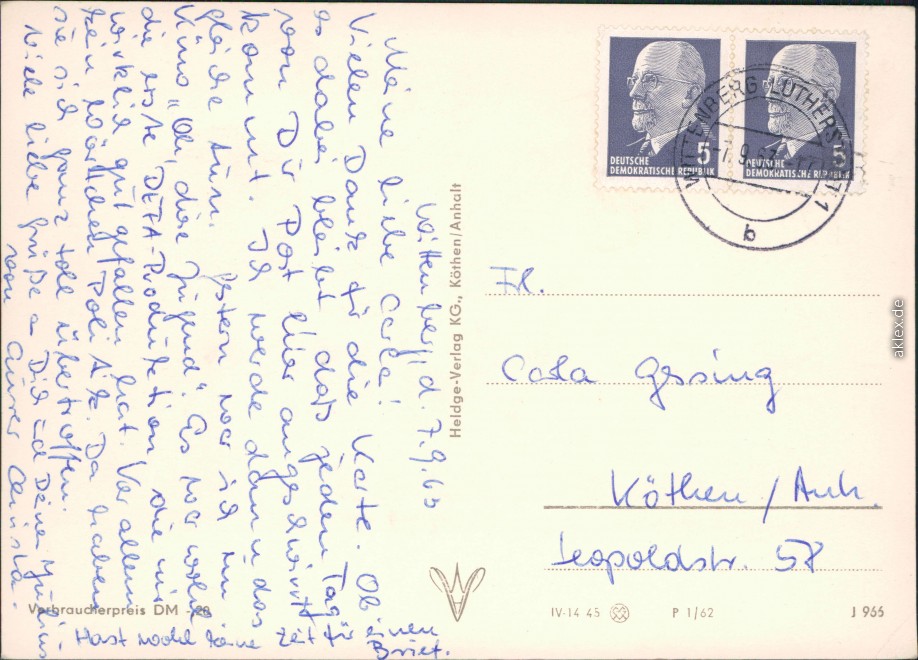 Wittenberg, d. 7.9.63
Meine liebe Carla!
Vielen Dank für die Karte. Ob
es dabei bleibt das jeden Tag
von Dir Post hier angeschwirrt
kommt. Ich werde dann das
gleiche tun. Gestern war ich im
Kino „Oh, diese Jugend". Es war wohl
die erste DEFA-Produktion die mir
wirklich gut gefallen hat. Vor allem
kein bißchen Politik. Da haben
sie sich ganz toll übertroffen.
Viele liebe Grüße an Dich und Deinen
von Eurer Christa.
Hast wohl keine Zeit für einen
Brief.
Heldge-Verlag KG., Köthen/Anhalt
5
DEUTSCHE
DEMOKRATISCHE REPUBLIK
DEUTSCHE
DEMOKRATISCHE REPUBLIK
WITTENBERG LUTHERSTADT 1
b
Frl.
Carla Gessing
Köthen / Anh.
Leopoldstr. 58
Verbraucherpreis DM -,20
IV-14 45
P 1/62
J 965
aklex.de